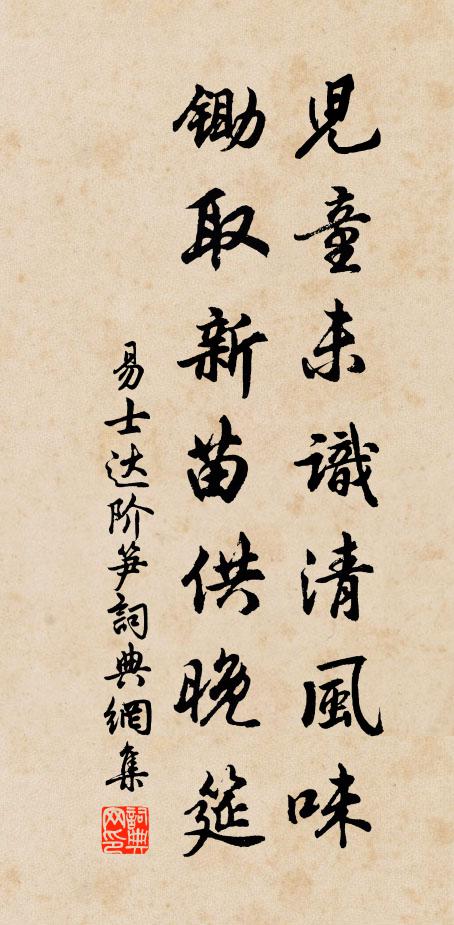 兒童未識清風味
鋤取新苗供晚筵
易士达阶笋詞典網集
詞典网印